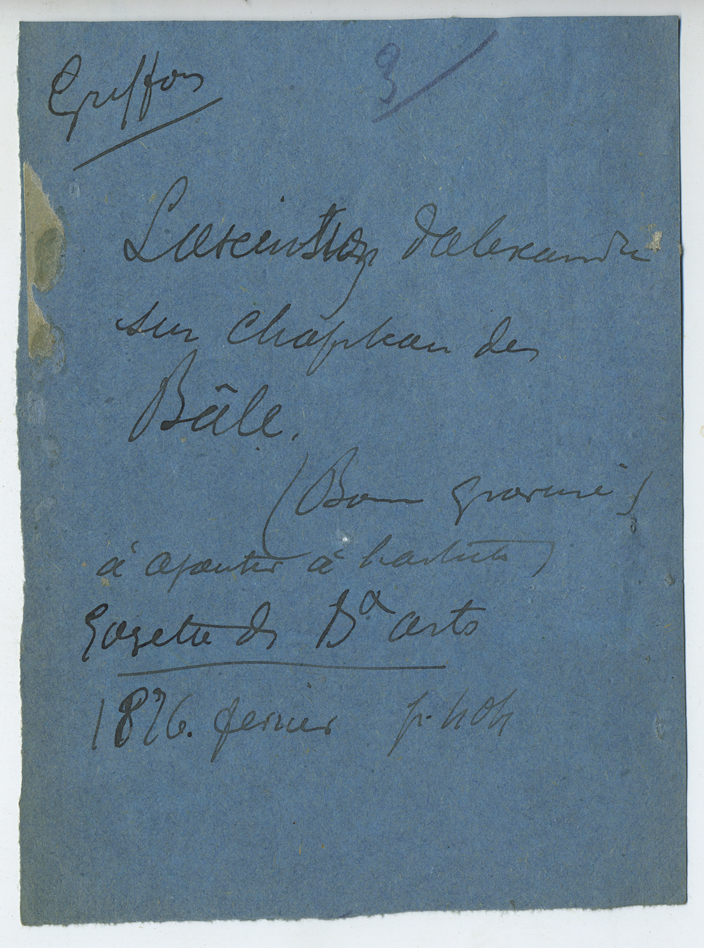 Griffon
3
L'ascension d'alexandre
sur chapiteau de
Bâle.
(Bonne gravure)
à ajouter à l'article
Gazette des Bx arts
1876. fevrier p. 404